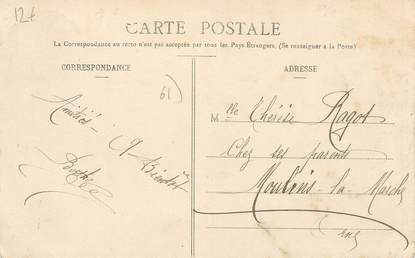 12€
CARTE POSTALE
La Correspondance au recto n'est pas acceptée par tous les Pays Étrangers. (Se renseigner à la Poste)
CORRESPONDANCE
ADRESSE
61)
Amitiés
Mlle Thérèse Ragot
Chez ses parents
Moulins-la-Marche
Orne